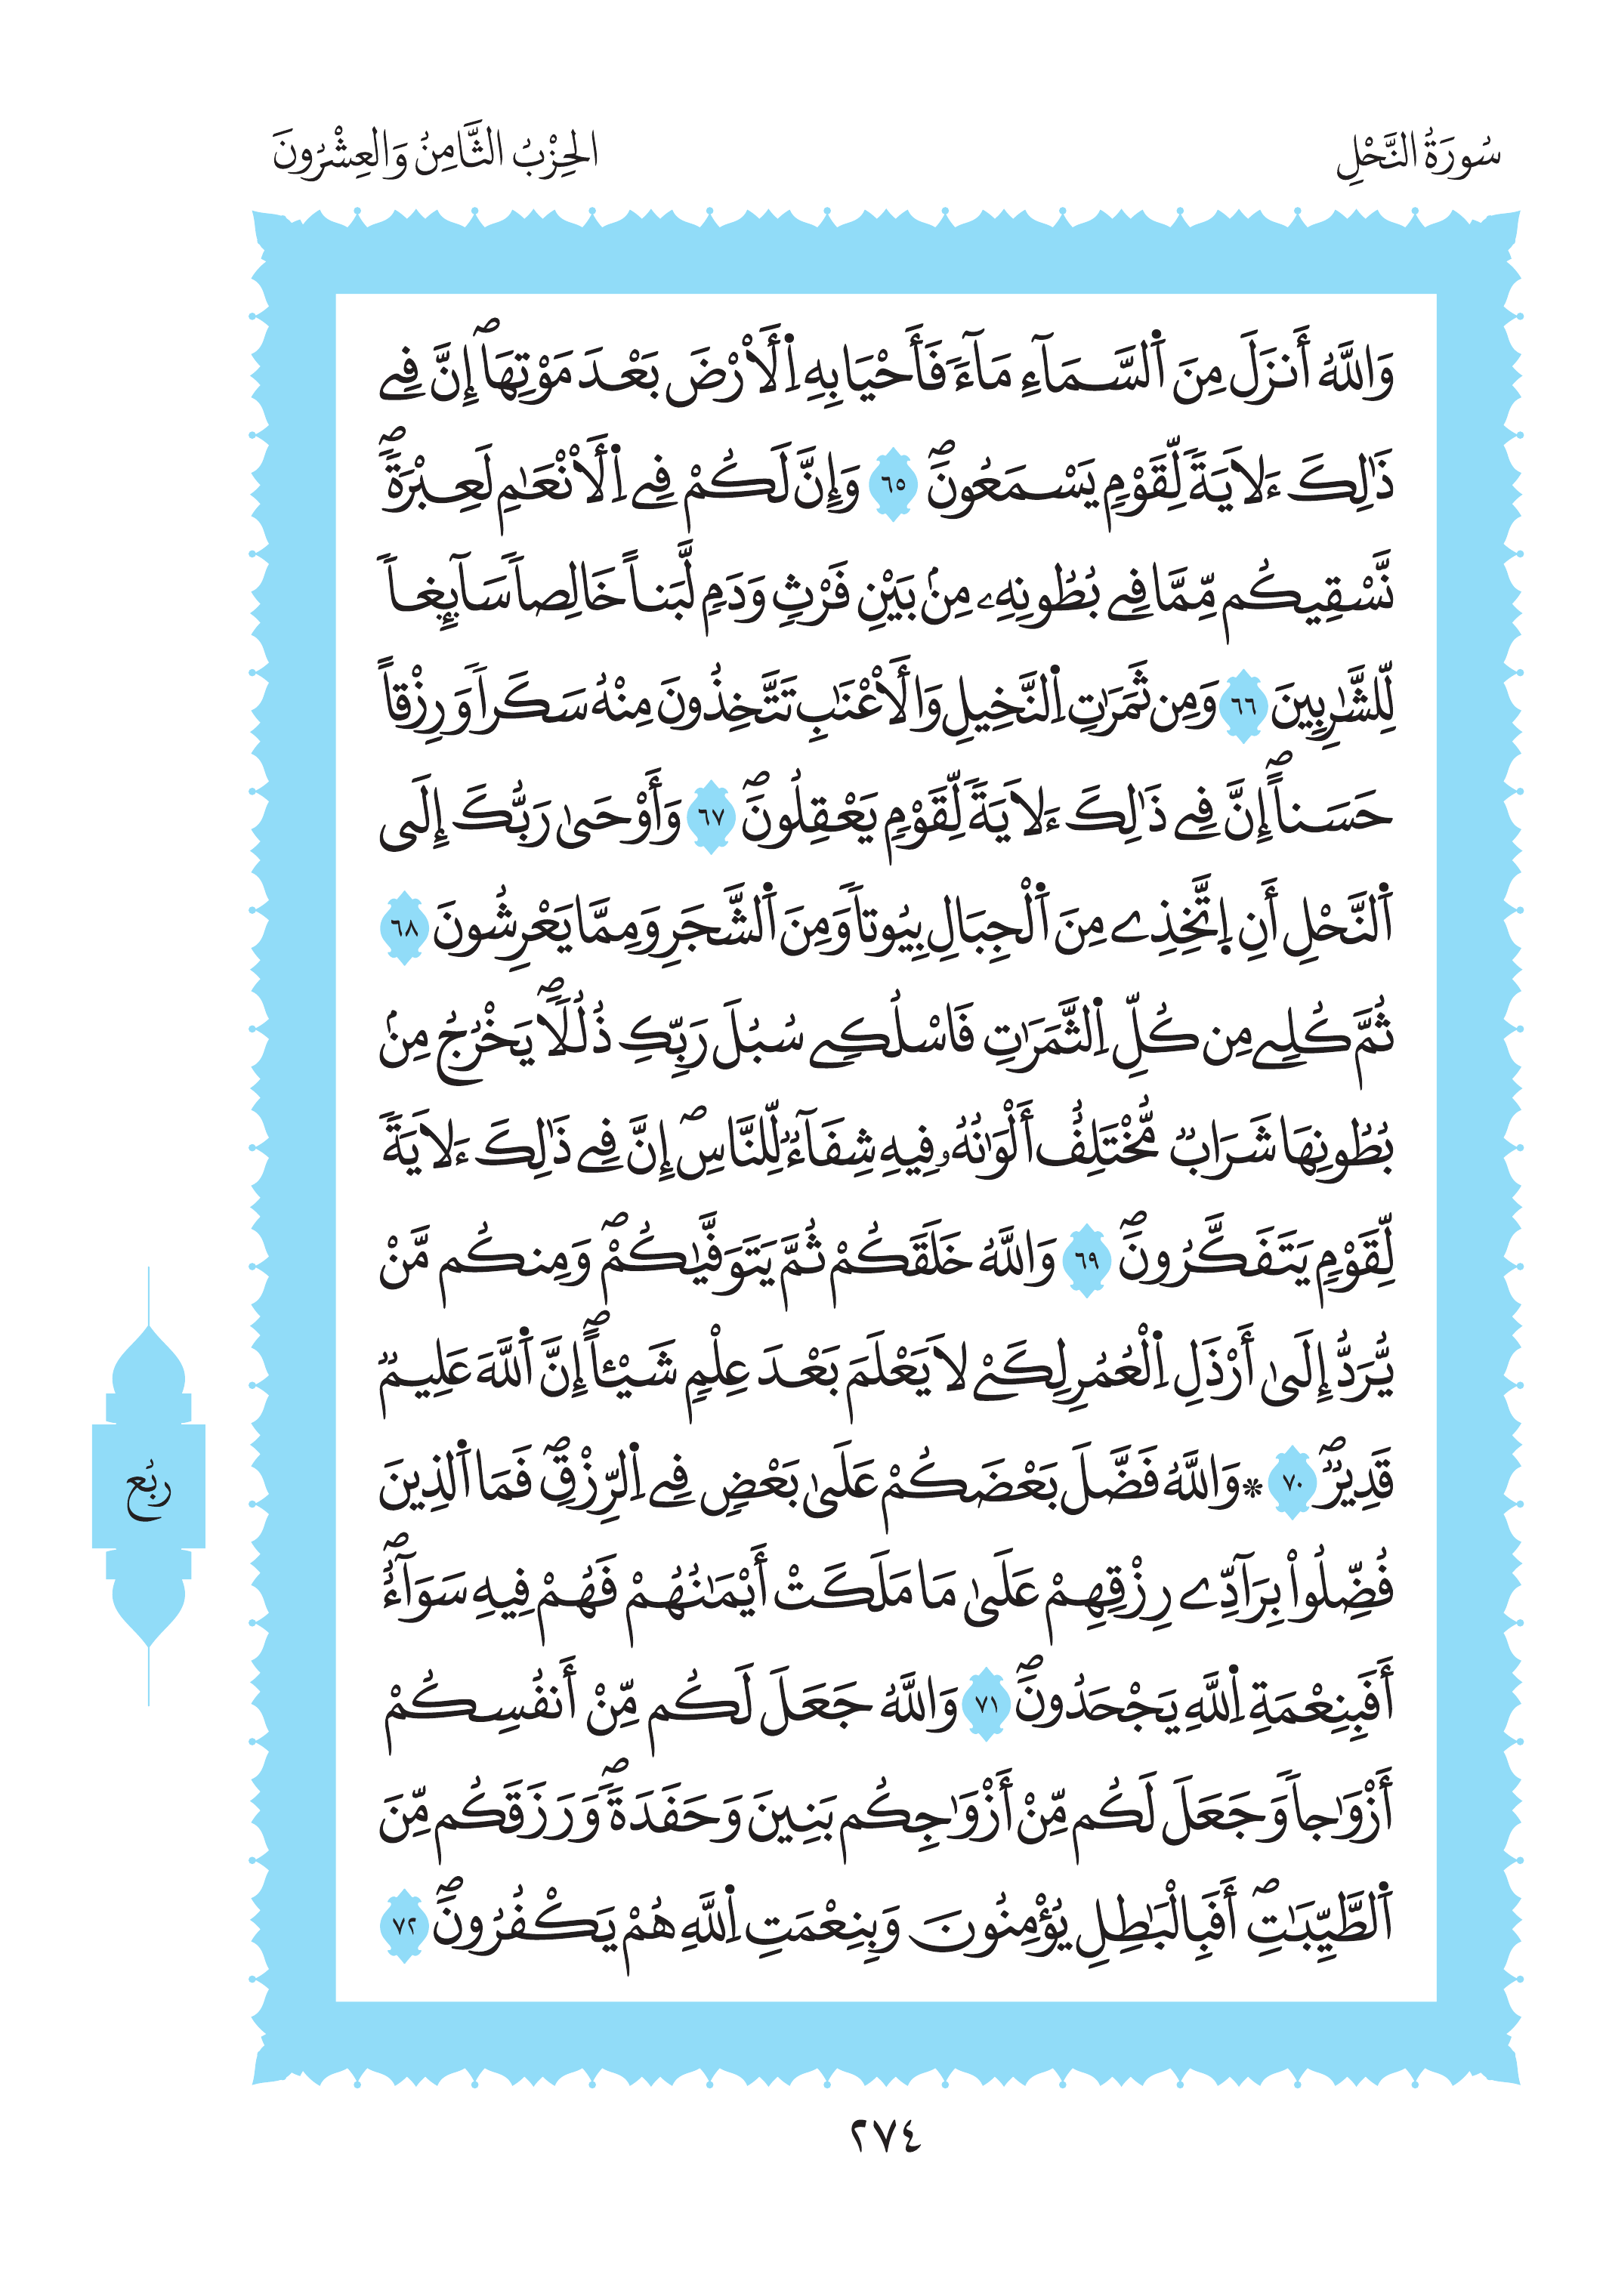 سُورَةُ النَّحْلِ
الحِزْبُ الثَّامِنُ وَالعِشْرُونَ
وَاللَّهُ أَنزَلَ مِنَ اَ۬لسَّمَآءِ مَآءٗ فَأَحْيَا بِهِ اِ۬لَارْضَ بَعْدَ مَوْتِهَاۖ إِنَّ فِے
ذَٰلِكَ ءَلَايَةٗ لِّقَوْمٖ يَسْمَعُونَۖ ٦٥ وَإِنَّ لَكُمْ فِے اِ۬لَانْعَٰمِ لَعِبْرَةٗۖ
نَّسْقِيكُم مِّمَّا فِے بُطُونِهِۦ مِنۢ بَيْنِ فَرْثٖ وَدَمٖ لَّبَناً خَالِصاٗ سَآئِغاٗ
لِّلشَّٰرِبِينَ ٦٦ وَمِن ثَمَرَٰتِ اِ۬لنَّخِيلِ وَالَاعْنَٰبِ تَتَّخِذُونَ مِنْهُ سَكَراٗ وَرِزْقاً
حَسَناًۖ إِنَّ فِے ذَٰلِكَ ءَلَايَةٗ لِّقَوْمٖ يَعْقِلُونَۖ ٦٧ وَأَوْحَىٰ رَبُّكَ إِلَى
اَ۬لنَّحْلِ أَنِ اِ۪تَّخِذِے مِنَ اَ۬لْجِبَالِ بِيُوتاٗ وَمِنَ اَ۬لشَّجَرِ وَمِمَّا يَعْرِشُونَ ٦٨
ثُمَّ كُلِے مِن كُلِّ اِ۬لثَّمَرَٰتِ فَاسْلُكِے سُبُلَ رَبِّكِ ذُلُلاٗۖ يَخْرُجُ مِنۢ
بُطُونِهَا شَرَابٞ مُّخْتَلِفٌ أَلْوَٰنُهُۥ فِيهِ شِفَآءٞ لِّلنَّاسِۖ إِنَّ فِے ذَٰلِكَ ءَلَايَةٗ
لِّقَوْمٖ يَتَفَكَّرُونَۖ ٦٩ وَاللَّهُ خَلَقَكُمْ ثُمَّ يَتَوَفَّيٰكُمْۖ وَمِنكُم مَّنْ
يُّرَدُّ إِلَىٰ أَرْذَلِ اِ۬لْعُمُرِ لِكَےْ لَا يَعْلَمَ بَعْدَ عِلْمٖ شَيْـٔاًۖ إِنَّ اَ۬للَّهَ عَلِيمٞ
قَدِيرٞۖ ٧٠ ۞وَاللَّهُ فَضَّلَ بَعْضَكُمْ عَلَىٰ بَعْضٖ فِے اِ۬لرِّزْقِۖ فَمَا اَ۬لذِينَ
فُضِّلُواْ بِرَآدِّے رِزْقِهِمْ عَلَىٰ مَا مَلَكَتْ أَيْمَٰنُهُمْ فَهُمْ فِيهِ سَوَآءٌۖ
أَفَبِنِعْمَةِ اِ۬للَّهِ يَجْحَدُونَۖ ٧١ وَاللَّهُ جَعَلَ لَكُم مِّنْ أَنفُسِكُمْ
أَزْوَٰجاٗ وَجَعَلَ لَكُم مِّنْ أَزْوَٰجِكُم بَنِينَ وَحَفَدَةٗۖ وَرَزَقَكُم مِّنَ
اَ۬لطَّيِّبَٰتِۖ أَفَبِالْبَٰطِلِ يُؤْمِنُونَ وَبِنِعْمَتِ اِ۬للَّهِ هُمْ يَكْفُرُونَۖ ٧٢
ربُع
٢٧٤